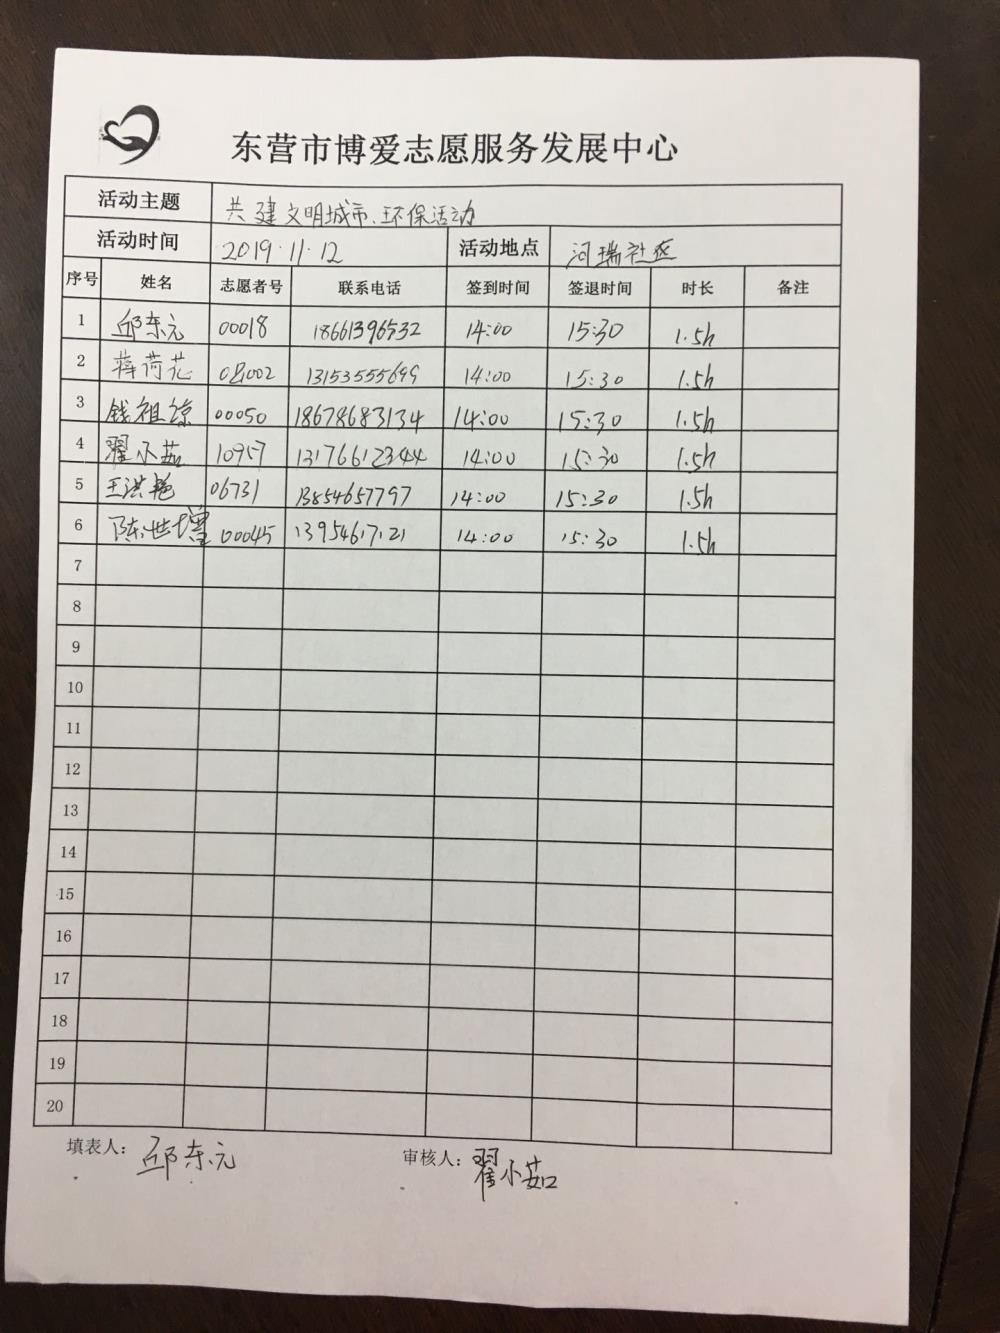 东营市博爱志愿服务发展中心
活动主题 共建文明城市、环保活动
活动时间 2019.11.12 活动地点 河瑞社区
序号 姓名 志愿者号 联系电话 签到时间 签退时间 时长 备注
1 邱东元 00018 18661396532 14:00 15:30 1.5h
2 蒋荷花 08002 13153555699 14:00 15:30 1.5h
3 钱祖琼 00050 18678683134 14:00 15:30 1.5h
4 翟小茹 10957 13176612344 14:00 15:30 1.5h
5 王洪艳 06731 13854657797 14:00 15:30 1.5h
6 陈世增 00045 14:00 15:30 1.5h
7
8
9
10
11
12
13
14
15
16
17
18
19
20
填表人：邱东元 审核人：翟小茹